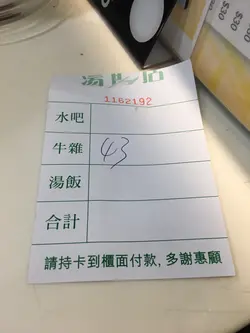 1162192
水吧
牛雜 43
湯飯
合計
請持卡到櫃面付款,多謝惠顧
$30